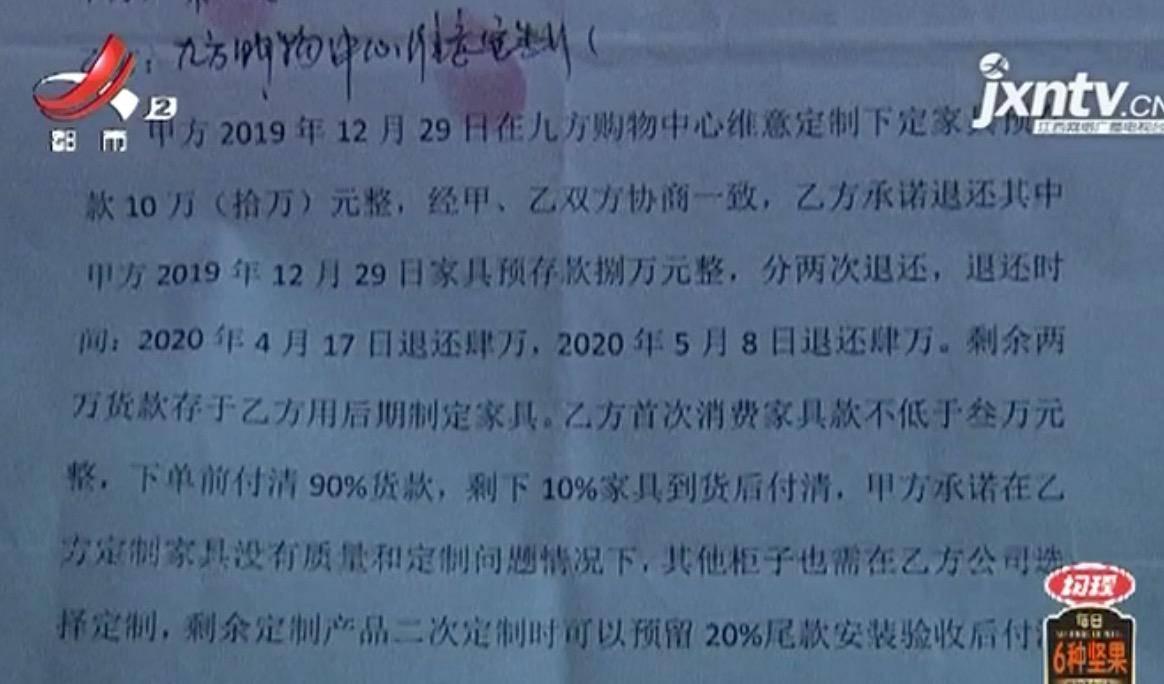 九方购物中心维意定制(
2
都市
jxntv.CN
甲方2019年12月29日在九方购物中心维意定制下定家具预
款10万（拾万）元整，经甲、乙双方协商一致，乙方承诺退还其中
甲方2019年12月29日家具预存款捌万元整，分两次退还，退还时
间：2020年4月17日退还肆万，2020年5月8日退还肆万。剩余两
万货款存于乙方用后期制定家具。乙方首次消费家具款不低于叁万元
整，下单前付清90%货款，剩下10%家具到货后付清，甲方承诺在乙
方定制家具没有质量和定制问题情况下，其他柜子也需在乙方公司选
择定制，剩余定制产品二次定制时可以预留20%尾款安装验收后付
每日
6种坚果